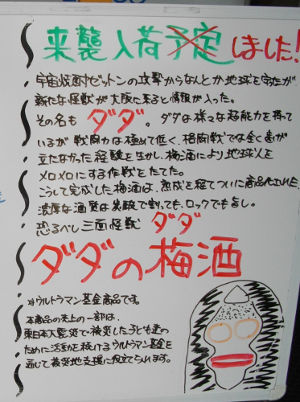 来襲入荷予定しました!
宇宙焼酎ゼットンの攻撃からなんとか地球を守たが
新たな怪獣が大阪に来ると情報が入った。
その名も ダダ。 ダダは様々な超能力を持て
いるが戦闘力は極めて低く、格闘戦では全く歯が
立たなかった経験を生かし、梅酒により地球人を
メロメロにする作戦をたてた。
こうして完成した梅酒は、熟成を経てついに商品化された
濃厚な酒質は美味で割っても、ロックでも旨し。
恐るべし三面怪獣 ダダ
ダダの梅酒
※ウルトラマン基金商品です。
本商品の売上の一部は、
東日本大震災で被災した子ども達の
ために活動を続けるウルトラマン基金を
通じて被災地支援に役立てられます。